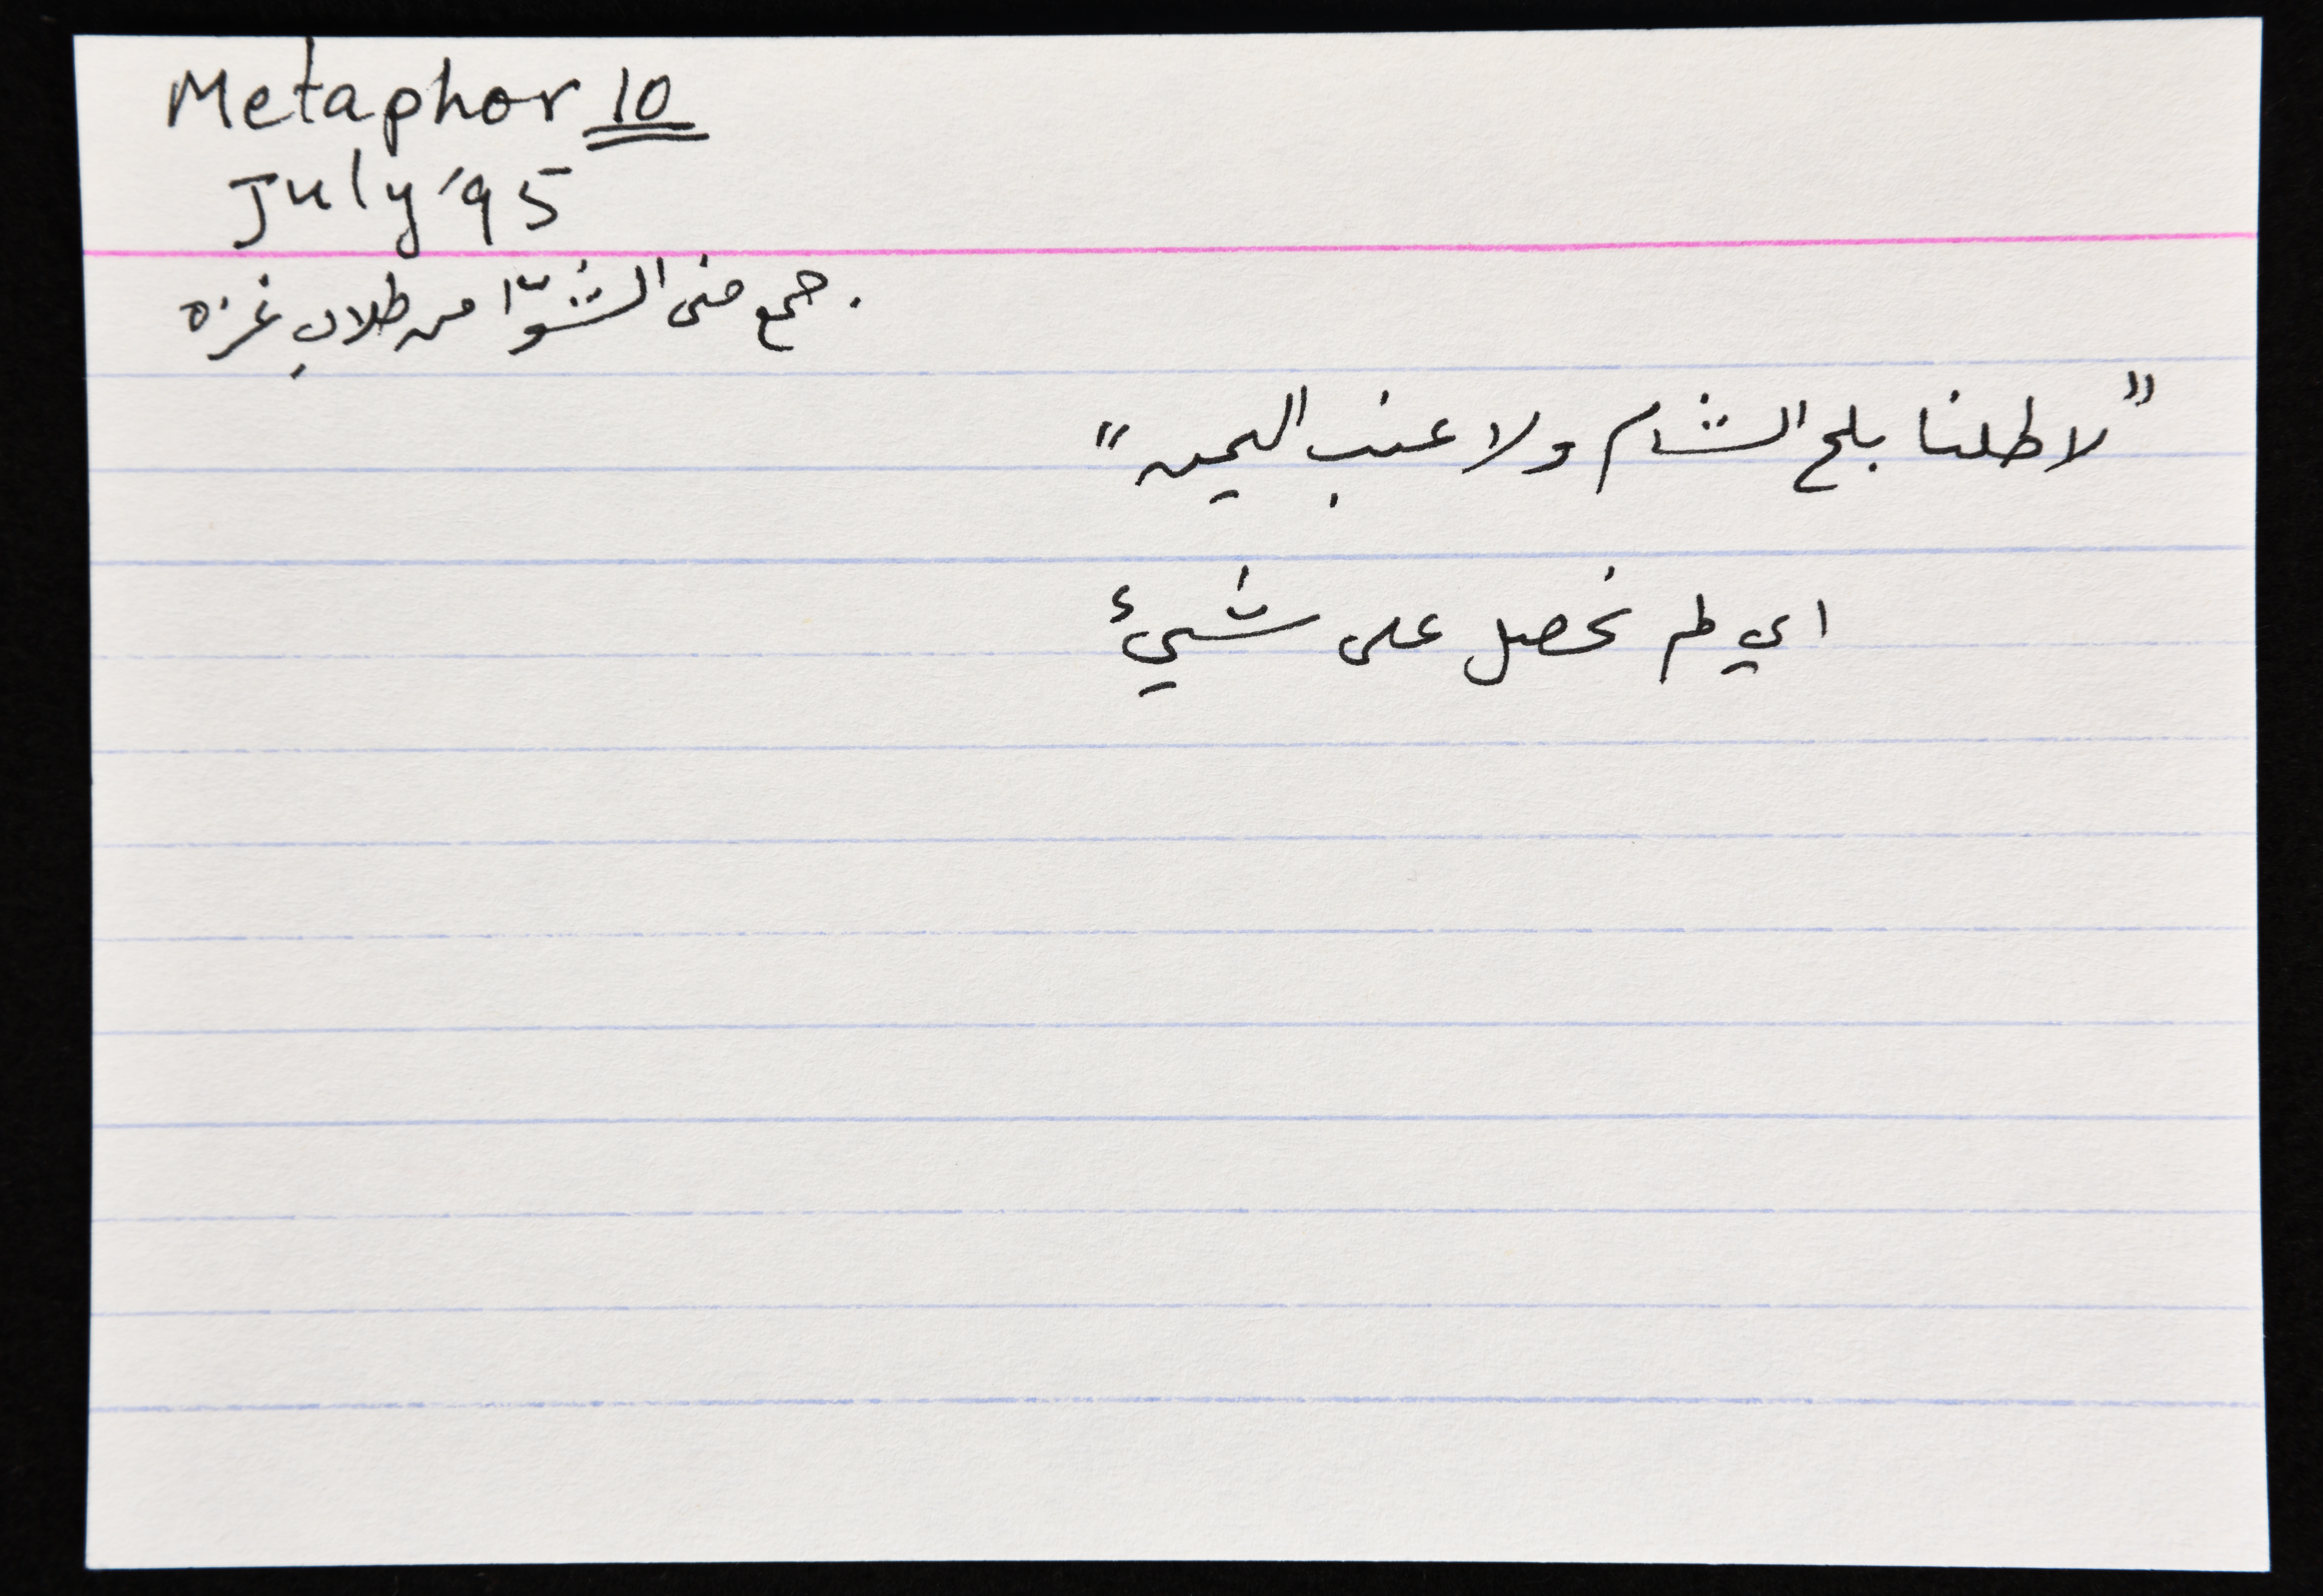 Metaphor 10
July '95
جمع منى الشوّا من طلاب غزه.
"لا طلنا بلح الشام ولا عنب اليمن"
اي لم نحصل على شيئ